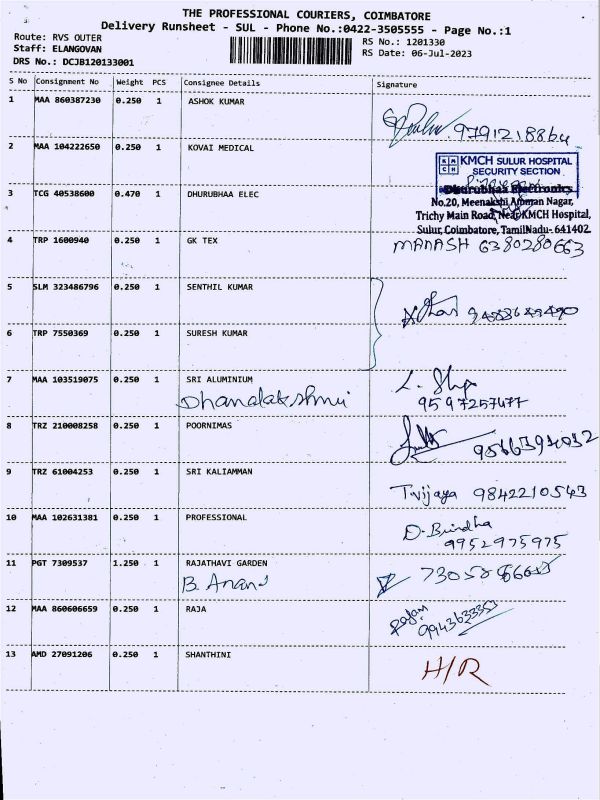 THE PROFESSIONAL COURIERS, COIMBATORE
Delivery Runsheet - SUL - Phone No.:0422-3505555 - Page No.:1
Route: RVS OUTER
Staff: ELANGOVAN
DRS No.: DCJB120133001
RS No.: 1201330
RS Date: 06-Jul-2023
S No Consignment No Weight PCS Consignee Details Signature
1 MAA 860387230 0.250 1 ASHOK KUMAR
2 MAA 104222650 0.250 1 KOVAI MEDICAL
KMCH SULUR HOSPITAL
SECURITY SECTION
3 TCG 40538600 0.470 1 DHURUBHAA ELEC
Dhurubhaa Electronks
No.20, Meenakshi Amman Nagar,
Trichy Main Road, Near KMCH Hospital,
Sulur, Coimbatore, TamilNadu- 641402
4 TRP 1600940 0.250 1 GK TEX
MANASH 6380280663
5 SLM 323486796 0.250 1 SENTHIL KUMAR
6 TRP 7550369 0.250 1 SURESH KUMAR
7 MAA 103519075 0.250 1 SRI ALUMINIUM
Dhanalakshmi
9597257477
8 TRZ 210008258 0.250 1 POORNIMAS
9 TRZ 61004253 0.250 1 SRI KALIAMMAN
T.vijaya 9842210543
10 MAA 102631381 0.250 1 PROFESSIONAL
D. Brindha
9952975975
11 PGT 7309537 1.250 1 RAJATHAVI GARDEN
B. Anand
12 MAA 860606659 0.250 1 RAJA
13 AMD 27091206 0.250 1 SHANTHINI
H/R